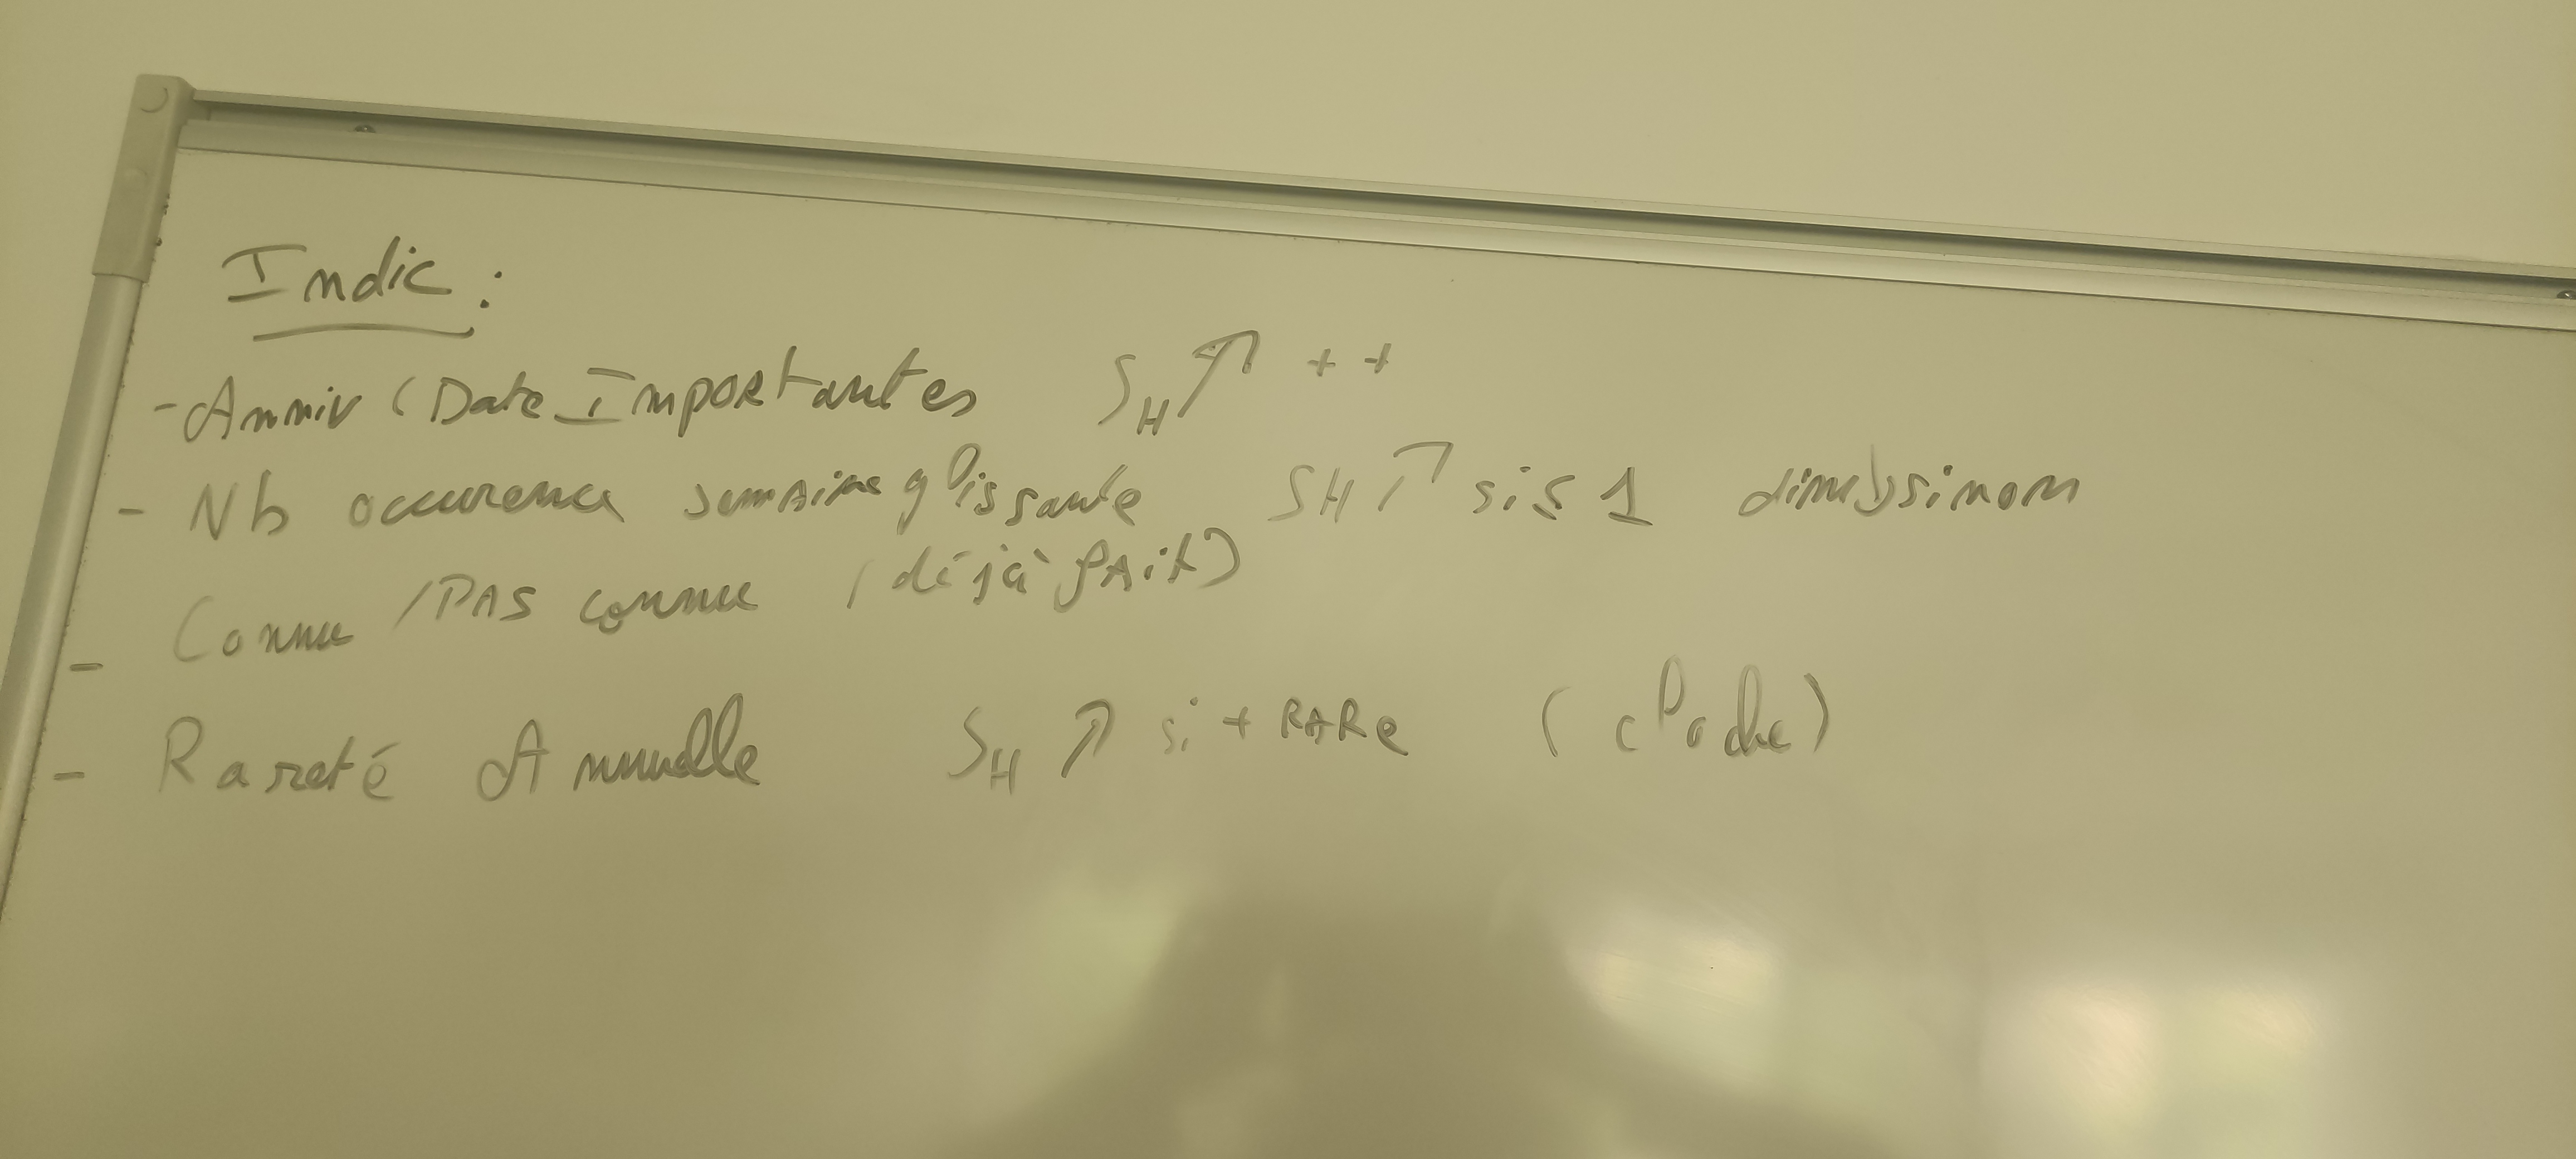 Indic :
- Anniv (Date Importantes S_H ↗ ++
- Nb occurence semaine glissante SH ↗ si ≤ 1 dim sinon
- Connu / PAS connue (déjà fAit)
- Rareté Annuelle S_H ↗ si + RARe (cloche)